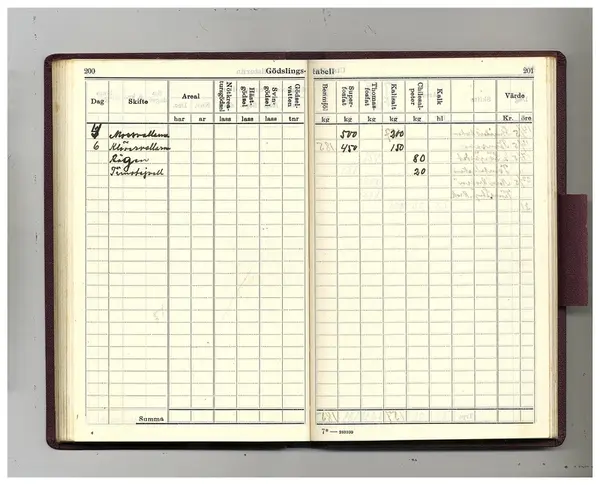 200 Gödslings-tabell 201
Dag Skifte Areal Nötkreatursgödsel Hästgödsel Svingödsel Gödselvatten Benmjöl Superfosfat Thomasfosfat Kalisalt Chilisalpeter Kalk Värde
har ar lass lass lass tnr kg kg kg kg kg hl Kr. öre
Mossvallarna 500 200
6 Klövervallarna 450 150
Rågen 80
Timotejvall 20
Summa
7* — 293399